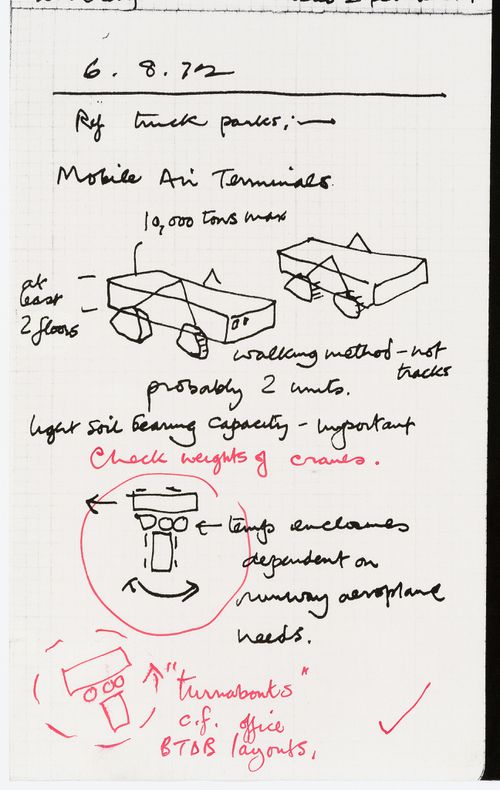 6. 8. 72
Ref truck parks;—
Mobile Air Terminals.
10,000 tons max
at
least
2 floors
walking method - not
tracks
probably 2 units.
light soil bearing capacity - important
Check weights of cranes.
← temp enclosures
dependent on
runway aeroplane
needs.
"turnabouts"
c.f. office
BTDB layouts.